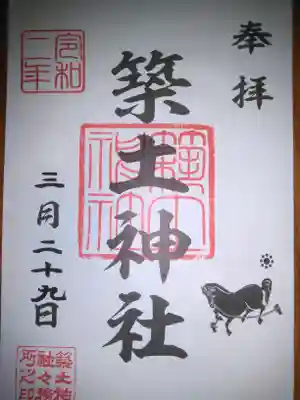 奉拝
築土神社
令和
二年
三月二十九日
築土神
社之印
築土神
社社務
所之印